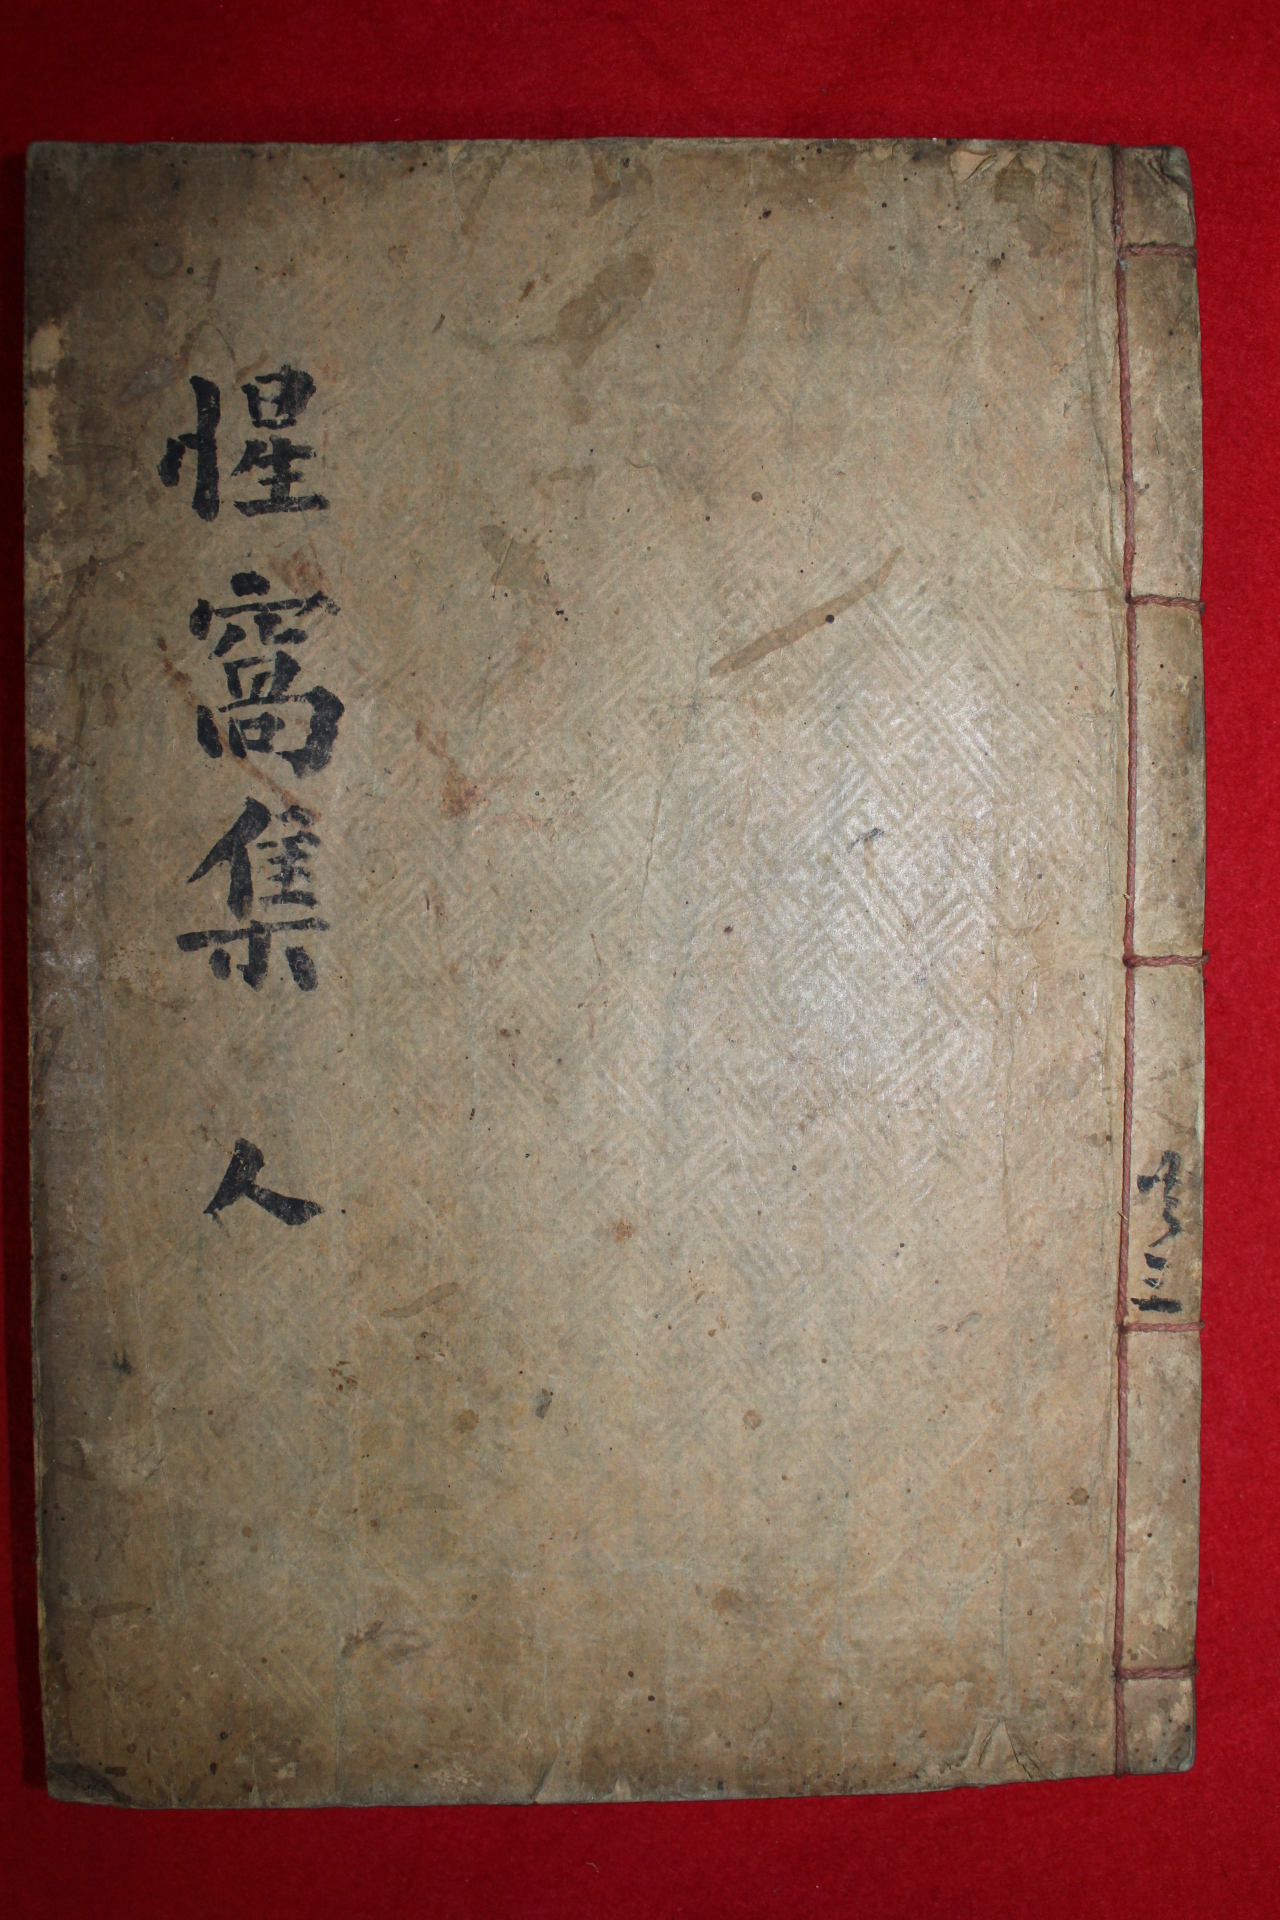 共三
惺窩集 人